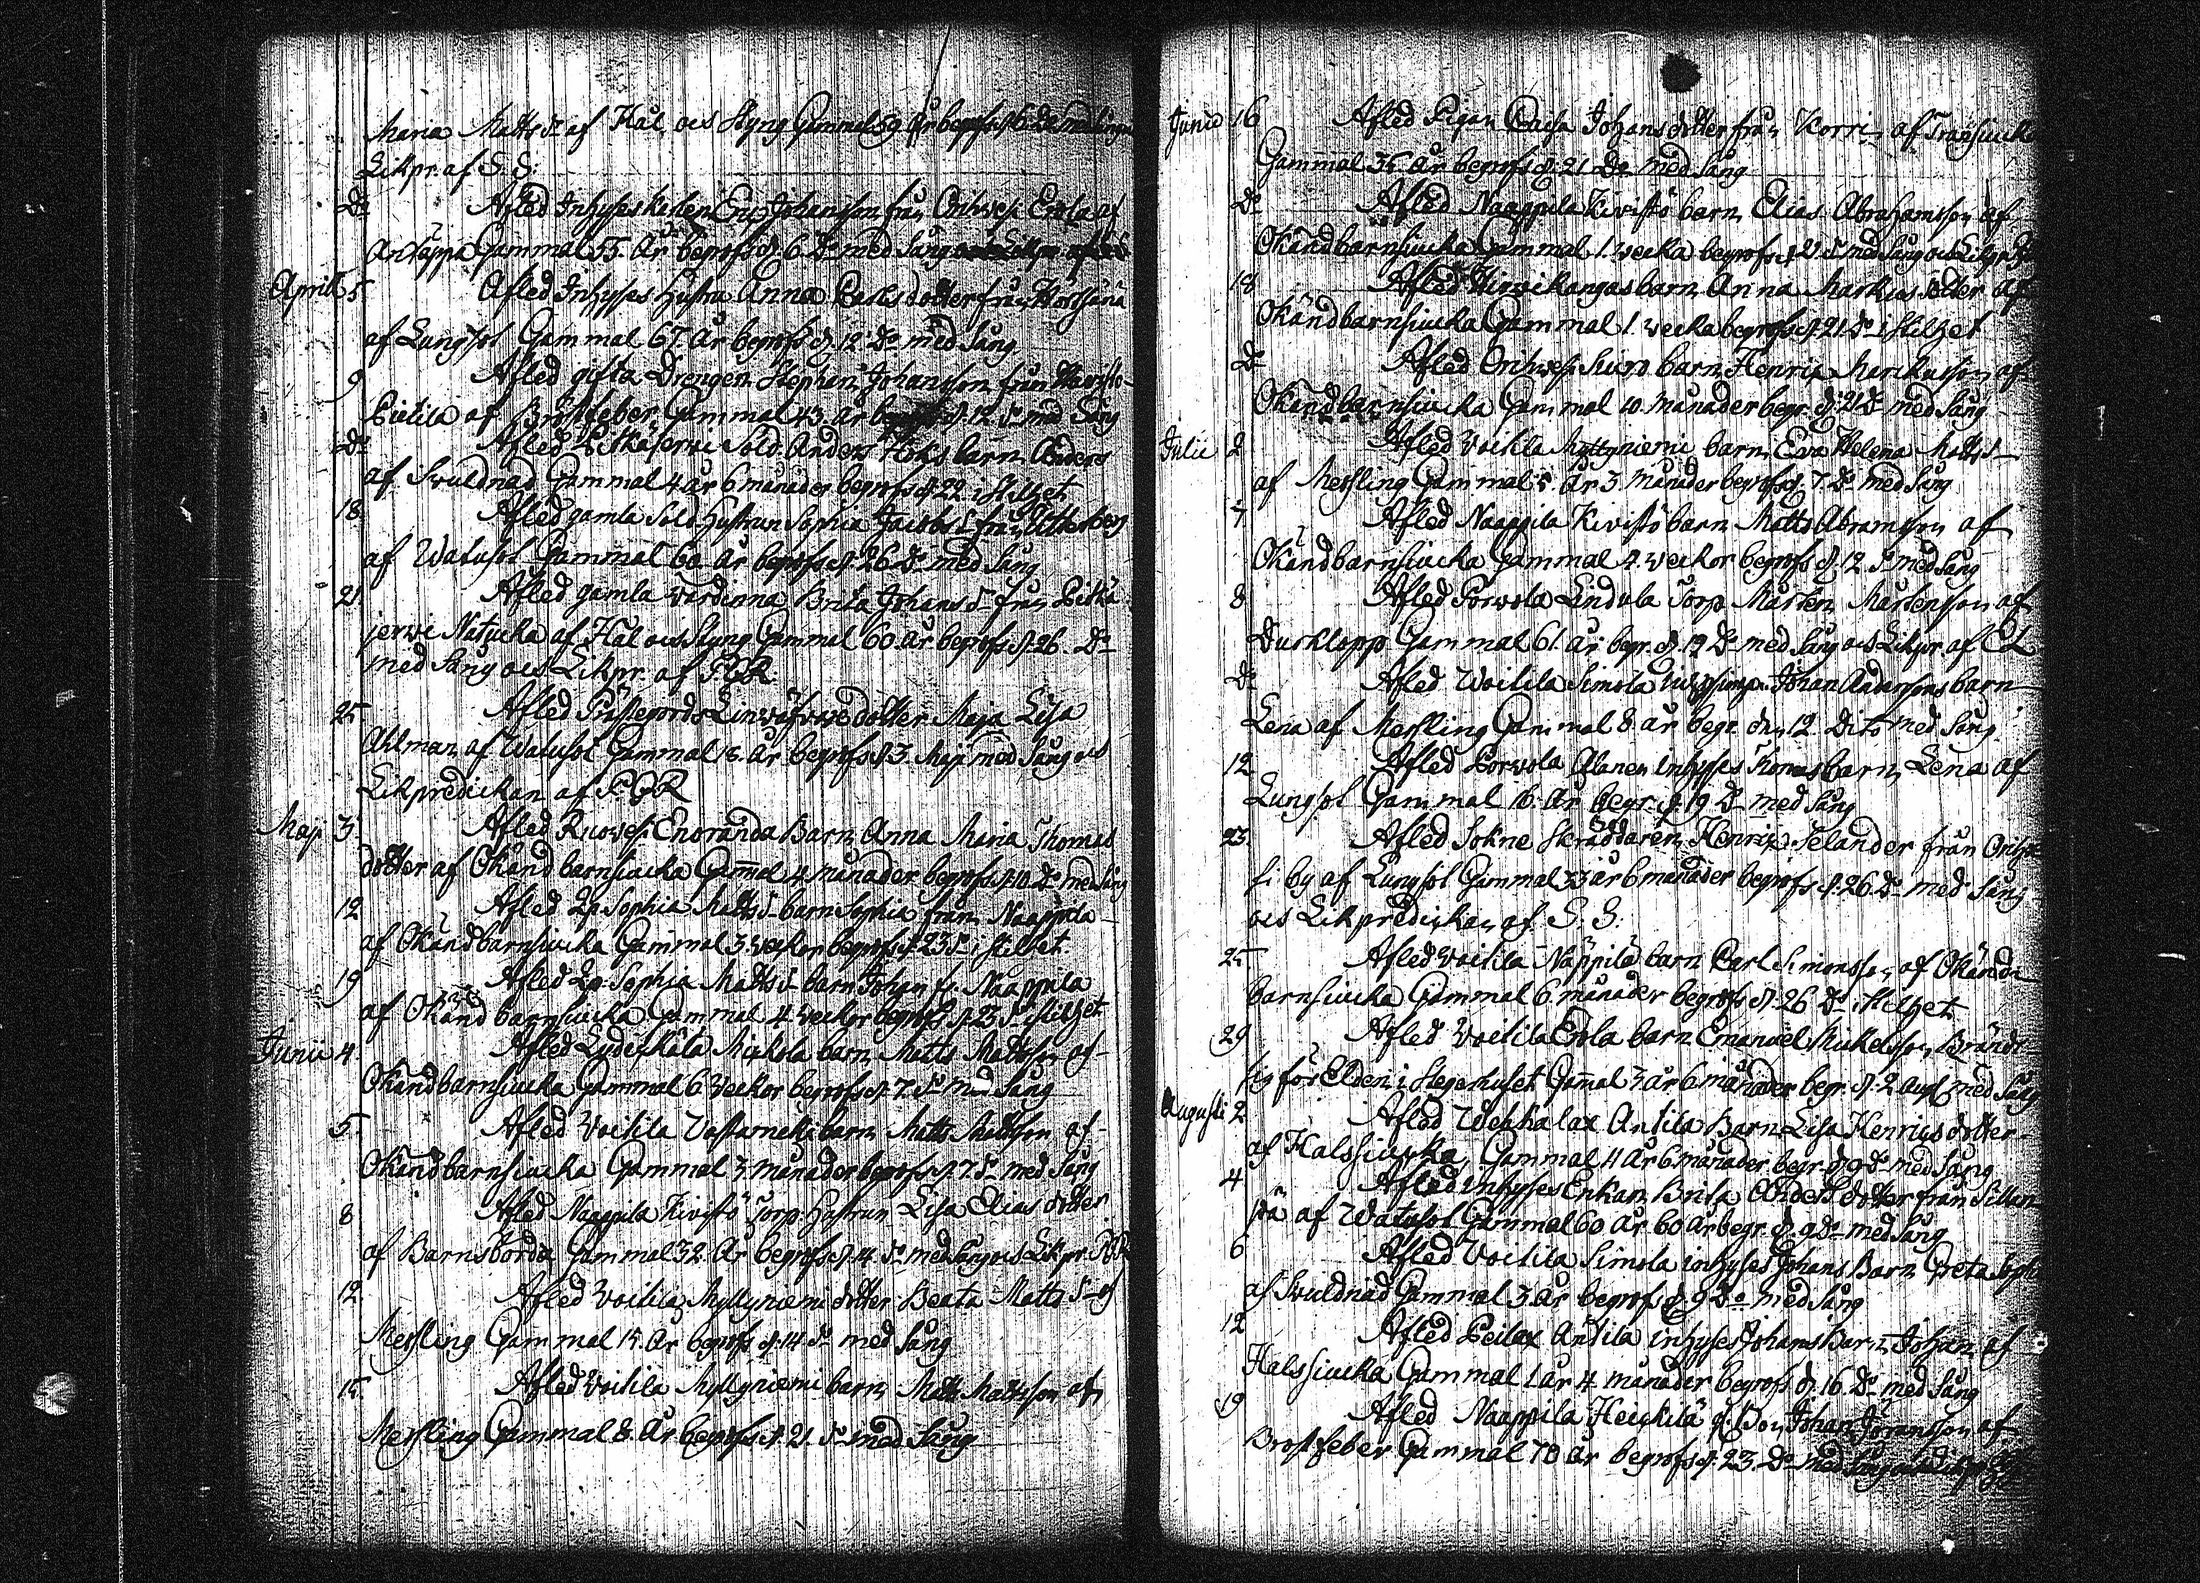 Maria Matts dr af Hål och Styng Gammal 59 år begrofs d. 6 Do
Likpr. af S. S:
Do Afled Inhyses Karlen Eric Johansson från Orihvesi Erola af
Gammal 55. År begrofs d. 6. Do med Sång
April 5 Afled Inhyses Hustru Anna Carlsdotter från
af Lungsot Gammal 67. År begrofs d. 12 Do med Sång
9 Afled gifta Drengen Stephan Johansson från
Pietila af Bröstfeber Gammal 43 år d. 12. Do med Sång
Do Afled Pitkäjerwi Sold. Anders Höks barn Anders
af Swulnad Gammal 4 år 6 månader begrofs d. 22 i stillhet
18 Afled gamla Sold. Hustrun Sophia Jacobs d. från
af Watusot Gammal 60. år begrofs d. 26 Do med Sång
21 Afled gamla Värdinna Brita Johans d. från Pitkä
jerwi af Hål och Styng Gammal 60 År begrofs d. 26. Do
med Sång och Likpr. af
25 Afled dotter Maja Lisa
Ahlman af Watusot Gammal 18. År begrofs d. 3. Maji med Sång och
Likpredikan af
Maji 3 Afled Ruovesi Enoranda Barn Anna Maria Thomas
dotter af Okänd barnsiucka Gammal 4 månader begrofs d. 10. Do med Sång
12 Afled Qp. Sophia Matts d. barn Sophia från Naappila
af Okänd barnsiucka Gammal 3 veckor begrofs d. 23 Do i stillhet
19 Afled Qp. Sophia Matts d. barn Johan fr. Naappila
af Okänd barnsiucka Gammal 4 veckor begrofs d. 23 Do i stillhet
Junii 4 Afled barn Matts Mattsson af
Okänd barnsiucka Gammal 6 Veckor begrofs d. 7. Do med Sång
5. Afled Voitila barn Matts Mattsson af
Okänd barnsiucka Gammal 3. månader begrofs d. 7. Do med Sång
8 Afled Naappila Kivistö Torp. Hustrun Lisa Elias dotter
af Barnsbörd Gammal 32. År begrofs d. Do med Sång och Likpr.
12. Afled Voitila Myllyniemi dotter Beata Matts d. af
Messling Gammal 15. År begrofs d. 14 Do med Sång
15 Afled Voitila Myllyniemi barn Matts Mattsson af
Messling Gammal 8. År begrofs d. 21. Do med Sång
Junii 16 Afled Pigan Caisa Johansdotter från Korri af
Gammal 35. År begrofs d. 21 Do med Sång
Do Afled Naappila Kivistö barn Elias Abrahamsson af
Okänd barnsiucka Gammal 1. vecka begrofs d. 21 Do med Sång och
18 Afled Hirvikangas barn Anna Markus dotter af
Okänd barnsiucka Gammal 1. vecka begrofs d. 21. Do i stillhet
Do Afled Orihvesi barn Henric Markusson af
Okänd barnsiucka Gammal 10. månader begr. d. 21 Do med Sång
Julii 2 Afled Voitila Myllyniemi barn Eva Helena Matts d.
af Messling Gammal 5. År 3. Månader begrofs d. 7. Do med Sång
7 Afled Naappila Kivistö barn Matts Abramsson af
Okänd barnsiucka Gammal 4. veckor begrofs d. 12. Do med Sång
8 Afled Porvola Lindula Torp. Mårten Mårtensson af
Durklopp Gammal 61. år begr. d. 19 Do med Sång och Likpr. af
Do Afled Voitila Simola Johan Anderssons barn
Lena af Messling Gammal 8 år begr. den 12. Dito med Sång
12 Afled Porvola Alanen inhyses Thomas barn Lena af
Lungsot Gammal 16. År begr. d. 19 Do med Sång
23. Afled Sokne Skräddaren Henric Selander från Orihve
si by af Lungsot Gammal 33 år 6 månader begrofs d. 26. Do med Sång
och Likpredikan af S. S:
25 Afled Voitila Näppilä barn Carl Simonsson af Okänd
barnsiucka Gammal 6 månader begrofs d. 26 Do i stillhet
29 Afled Voitila Erola barn Emanuel Michelsson Brände
sig för Elden i Gammal 3 år 6 månader begr. d. 2 Aug med Sång
Augusti 2 Afled Wehkalax Antila Barn Lisa Henricsdotter
af Halssiucka Gammal 4 År 6 månader begr. d. 9 Do med Sång
4 Afled inhyses Enkan Brita Andersdotter från Sillan
pä af Watusot Gammal 60 År 60 år begr. d. 9 Do med Sång
6 Afled Voitila Simola inhyses Johans Barn Greta
af Swulnad Gammal 3. År begrofs d. 9 Do med Sång
12 Afled Peilax Antila inhyses Johans Barn Johan af
Halssiucka Gammal 1 år 4. månader begrofs d. 16. Do med Sång
19 Afled Naappila Heickilä Johan Jöransson af
Brostfeber Gammal 70 år begrofs d. 23. Do med Sång